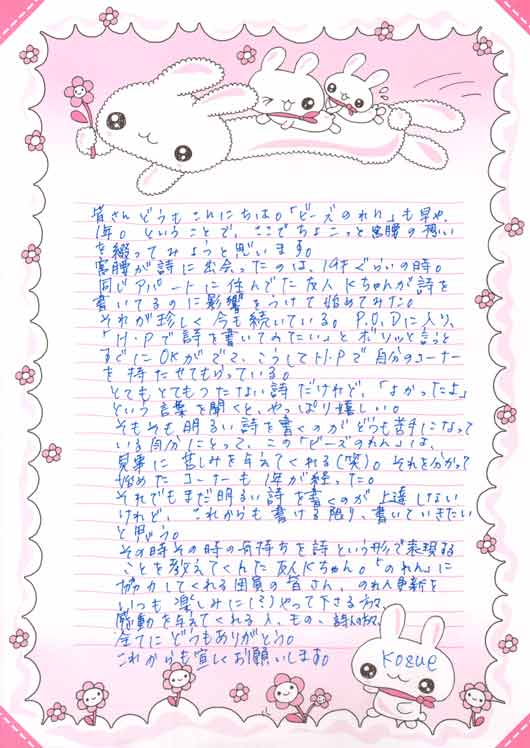 皆さんどうもこんにちは。「ビーズのれん」も早や、
1年。ということで、ここでちょこっと窓腰の想い
を綴ってみようと思います。
窓腰が詩に出会ったのは、19才ぐらいの時。
同じアパートに住んでた友人Kちゃんが詩を
書いてるのに影響をうけて始めてみた。
それが珍しく今も続いている。P.O.Dに入り、
「H・Pで詩を書いてみたい」とボソッと言うと
すぐにOKがでて、こうしてH・Pで自分のコーナー
を持たせてもらっている。
とてもとてもつたない詩だけれど、「よかったよ」
という言葉を聞くと、やっぱり嬉しい。
そもそも明るい詩を書くのがどうも苦手になって
いる自分にとって、この「ビーズのれん」は、
見事に苦しみを与えてくれる(笑)。それを分かって
始めたコーナーも1年が経った。
それでもまだ明るい詩を書くのが上達しない
けれど、これからも書ける限り、書いていきたい
と思う。
その時その時の気持ちを詩という形で表現する
ことを教えてくれた友人Kちゃん。「のれん」に
協力してくれる団員の皆さん、のれん更新を
いつも楽しみに(?)やって下さる方々、
感動を与えてくれる人、もの、詩人の方々、
全てにどうもありがとう。
これからも宜しくお願いします。
Kozue